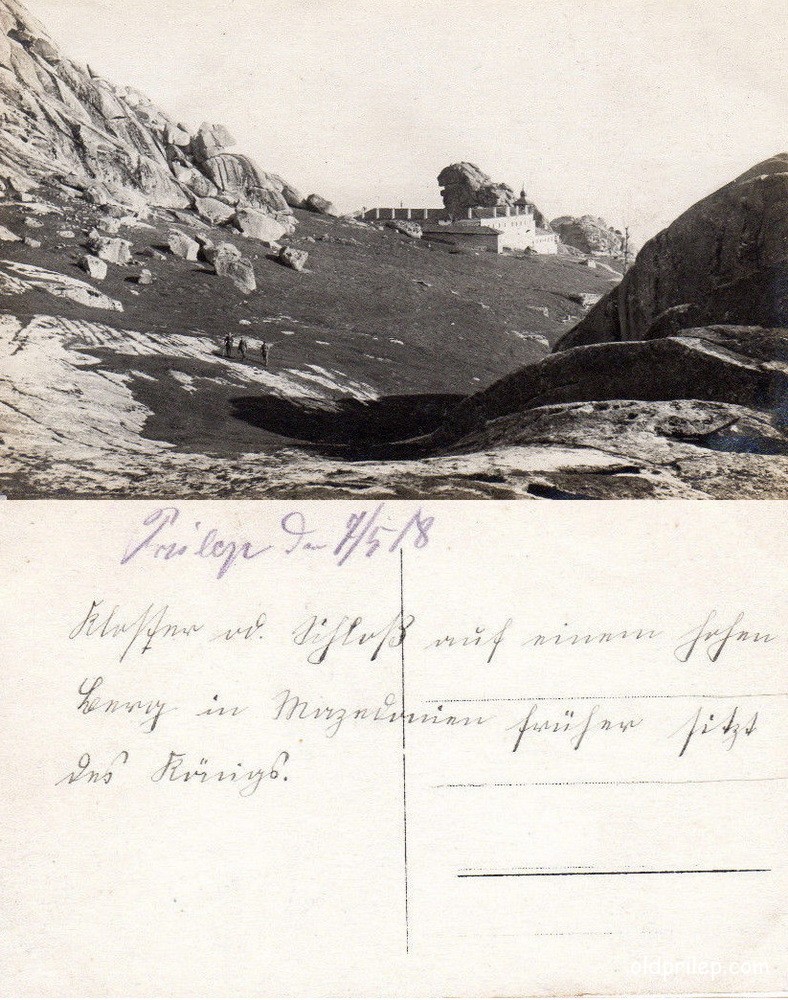 Prilep den 7/5 18
Kloster od. Schloß auf einem hohen
Berg in Mazedonien früher sitzt
des Königs.
oldprilep.com